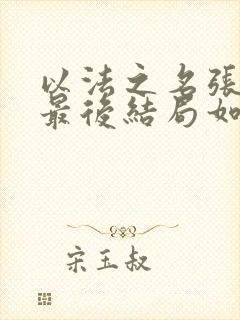 以法之名張
最後結局如
宋玉叔